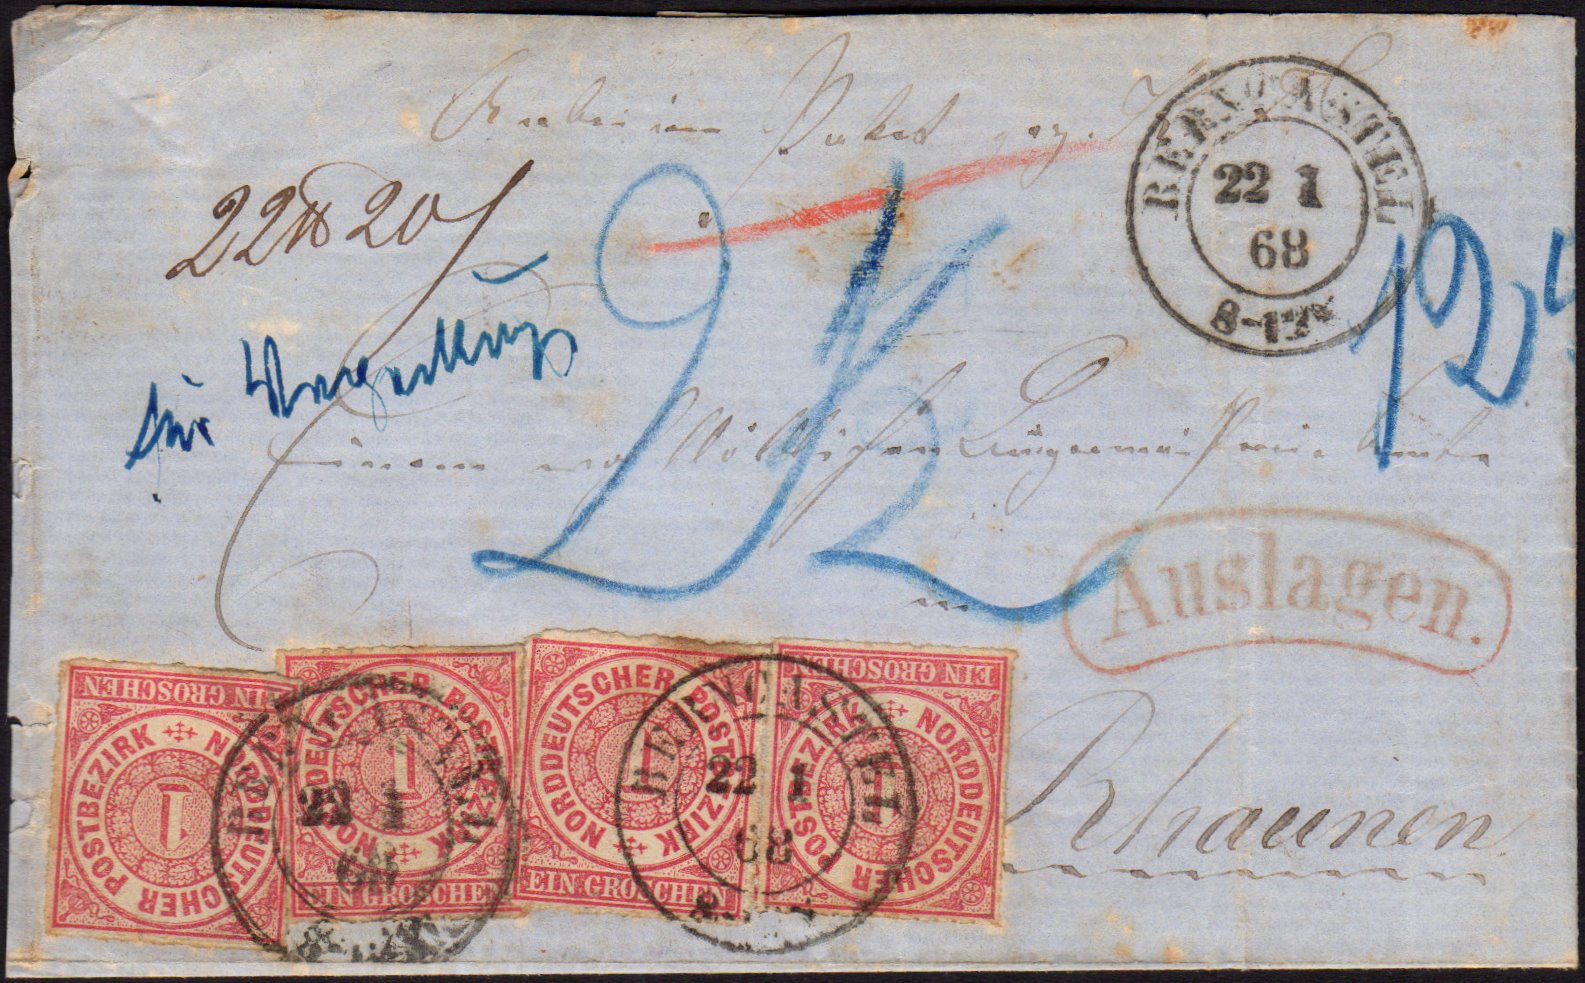 Anbei ein Paket gez.
BERNCASTEL
22 1
68
8-12V
22 ℔ 20
2½
12
für
Einem Wohllöblichen Bürgermeisterei Amte
Auslagen.
in
Rhaunen
EIN GROSCHEN
NORDDEUTSCHER POSTBEZIRK
1
NORDDEUTSCHER POSTBEZIRK
1
EIN GROSCHEN
NORDDEUTSCHER POSTBEZIRK
1
EIN GROSCHEN
EIN GROSCHEN
NORDDEUTSCHER POSTBEZIRK
BERNCASTEL
22 1
68
BERNCASTEL
22 1
68